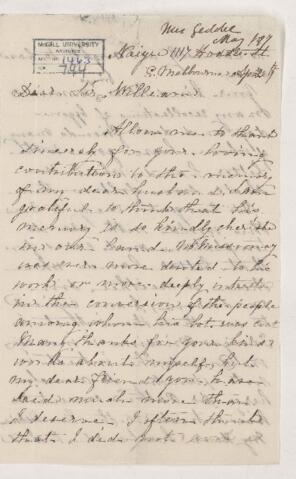 Mrs Geddie
May 187
McGILL UNIVERSITY
ARCHIVES
ACC. NO. 1463
REF. 794
Hoddle St
E. Melbourne April 19
Dear Sir William
Allow me to thank
sincerely for your loving
contributions to the memory
of my dear husband. I am
grateful to think that his
memory is so kindly cherished
in our land. No Missionary
was ever more devoted to his
work or more deeply interested
in the conversion of the people
among whom his lot was cast
Many thanks for your kind
words about myself, but
my dear friend you have
said much more than
I deserve. I often think
that I did not